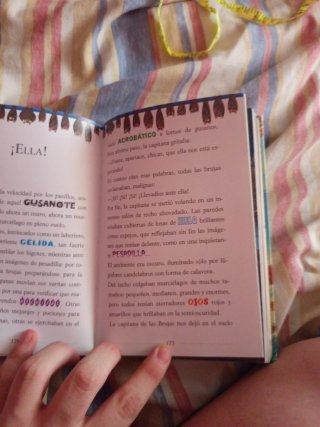 ¡ELLA!
velocidad por los pasillos,
aquel GUSANOTE con
ahora un muro, ahora un
intrincados como un laberinto,
GÉLIDA, tan fuerte
los bigotes, mientras ante
imágenes de pesadilla:
brujas preparándose para la
movían sus varitas
una para verificar que
Otras
mejunjes y pociones para
otras se ejercitaban en el
vuelo ACROBÁTICO a lomos de gusanos.
paso, la capitana gritaba:
apartaos, chicas, que ella nos está es-
perando!
cuanto oían esas palabras, todas las brujas
exclamaban, malignas:
¡Llevadlos ante ella!
Por fin, la capitana se metió volando en un in-
menso salón de techo abovedado. Las paredes
estaban cubiertas de losas de brillantes
como espejos, que reflejaban sin fin las imáge-
nes que tenían delante, como en una inquietan-
te PESADILLA.
El ambiente era oscuro, iluminado sólo por lú-
gubres candelabros con forma de calavera.
Del techo colgaban murciélagos de muchos ta-
maños: pequeños, medianos, grandes y enormes,
pero todos tenían aterradores OJOS rojos y
amarillos que brillaban en la semioscuridad.
La capitana de las Brujas nos dejó en el suelo